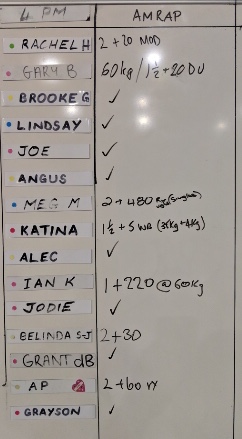 4 PM AMRAP
RACHEL H 2 + 20 MOD
GARY B 60kg / 1½ + 20 DU
BROOKE G ✓
LINDSAY ✓
JOE ✓
ANGUS ✓
MEG M 2 + 480
KATINA 1½ + 5 WB (35kg + 4kg)
ALEC ✓
IAN K 1 + 220 @ 60kg
JODIE ✓
BELINDA S-J 2 + 30
GRANT dB ✓
AP 2 + 60
GRAYSON ✓